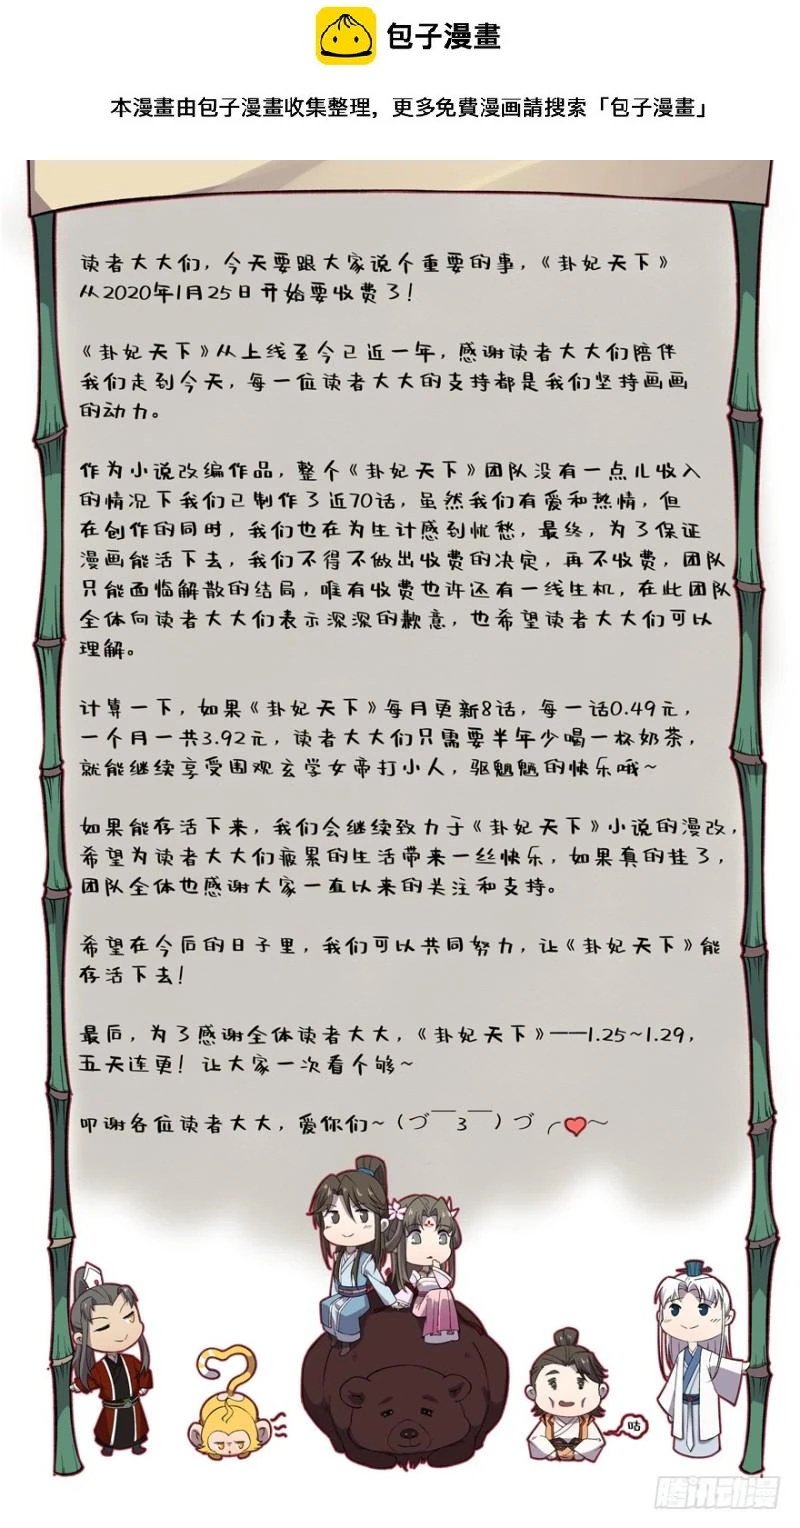 包子漫畫
本漫畫由包子漫畫收集整理，更多免費漫画請搜索「包子漫畫」
读者大大们，今天要跟大家说个重要的事，《卦妃天下》
从2020年1月25日开始要收费了！
《卦妃天下》从上线至今已近一年，感谢读者大大们陪伴
我们走到今天，每一位读者大大的支持都是我们坚持画画
的动力。
作为小说改编作品，整个《卦妃天下》团队没有一点儿收入
的情况下我们已制作了近70话，虽然我们有爱和热情，但
在创作的同时，我们也在为生计感到忧愁，最终，为了保证
漫画能活下去，我们不得不做出收费的决定，再不收费，团队
只能面临解散的结局，唯有收费也许还有一线生机，在此团队
全体向读者大大们表示深深的歉意，也希望读者大大们可以
理解。
计算一下，如果《卦妃天下》每月更新8话，每一话0.49元，
一个月一共3.92元，读者大大们只需要半年少喝一杯奶茶，
就能继续享受围观玄学女帝打小人，驱魍魉的快乐哦~
如果能存活下来，我们会继续致力于《卦妃天下》小说的漫改，
希望为读者大大们疲累的生活带来一丝快乐，如果真的挂了，
团队全体也感谢大家一直以来的关注和支持。
希望在今后的日子里，我们可以共同努力，让《卦妃天下》能
存活下去！
最后，为了感谢全体读者大大，《卦妃天下》——1.25~1.29，
五天连更！让大家一次看个够~
叩谢各位读者大大，爱你们~（づ￣3￣）づ╭❤～
咕
腾讯动漫